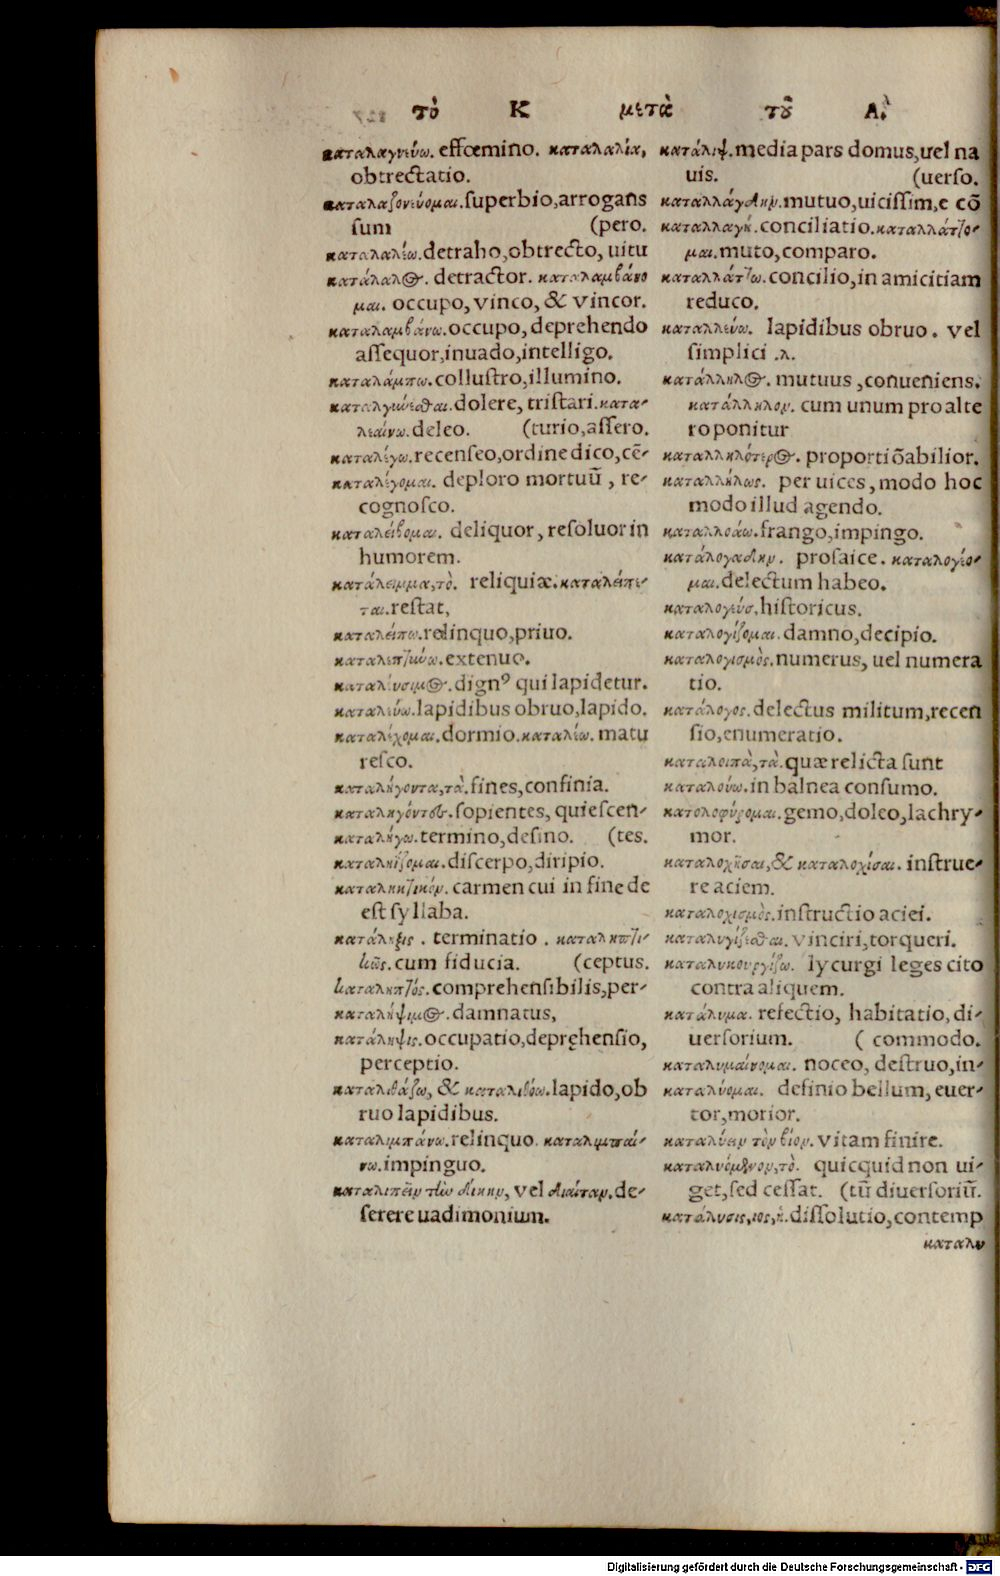 τὸ Κ μετὰ τοῦ Α.
καταλαγνεύω. effœmino. καταλαλία,
obtrectatio.
καταλαζονεύομαι. superbio, arrogans
sum (pero.
καταλαλέω. detraho, obtrecto, uitu
κατάλαλος. detractor. καταλαμβάνο
μαι. occupo, vinco, & vincor.
καταλαμβάνω. occupo, deprehendo
assequor, inuado, intelligo.
καταλάμπω. collustro, illumino.
καταλγύνεσθαι. dolere, tristari. κατα-
λεαίνω. deleo. (turio, assero.
καταλέγω. recenseo, ordine dico, cē-
καταλέγομαι. deploro mortuū, re-
cognosco.
καταλείβομαι. deliquor, resoluor in
humorem.
κατάλειμμα, τὸ. reliquiæ. καταλείπε-
ται. restat,
καταλείπω. relinquo, priuo.
καταλεπτύνω. extenuo.
καταλεύσιμος. dignꝰ qui lapidetur.
καταλεύω. lapidibus obruo, lapido.
καταλέχομαι. dormio. καταλέω. matu
resco.
καταλήγοντα, τὰ. fines, confinia.
καταληγόντως. sopientes, quiescen-
καταλήγω. termino, desino. (tes.
καταληΐζομαι. discerpo, diripio.
καταληκτικόν. carmen cui in fine de
est syllaba.
κατάληξις. terminatio. καταληπτι-
κῶς. cum fiducia. (ceptus.
καταληπτός. comprehensibilis, per-
καταλήψιμος. damnatus,
κατάληψις. occupatio, depręhensio,
perceptio.
καταλιθάζω, & καταλιθόω. lapido, ob
ruo lapidibus.
καταλιμπάνω. relinquo. καταλιμπαί-
νω. impinguo.
καταλιπεῖν τὴν δίκην, vel δίαιταν. de-
serere uadimonium.
κατάλιψ. media pars domus, uel na
uis. (uerso.
καταλλάγδην. mutuo, uicissim, e cō
καταλλαγή. conciliatio. καταλλάττο-
μαι. muto, comparo.
καταλλάττω. concilio, in amicitiam
reduco.
καταλλεύω. lapidibus obruo. vel
simplici .λ.
κατάλληλος. mutuus, conueniens.
κατάλληλον. cum unum pro alte
ro ponitur
καταλληλότερος. proportiōabilior.
καταλλήλως. per uices, modo hoc
modo illud agendo.
καταλλοάω. frango, impingo.
κατάλογάδην. prosaice. καταλογέο-
μαι. delectum habeo.
καταλογεύς. historicus.
καταλογίζομαι. damno, decipio.
καταλογισμὸς. numerus, uel numera
tio.
κατάλογος. delectus militum, recen
sio, enumeratio.
καταλοιπὰ, τὰ. quæ relicta sunt
καταλούω. in balnea consumo.
κατολοφύρομαι. gemo, doleo, lachry-
mor.
καταλοχῆσαι, & καταλοχίσαι. instrue-
re aciem.
καταλοχισμὸς. instructio aciei.
καταλυγίζεσθαι. vinciri, torqueri.
καταλυκουργίζω. lycurgi leges cito
contra aliquem.
κατάλυμα. refectio, habitatio, di-
uersorium. ( commodo.
καταλυμαίνομαι. noceo, destruo, in-
καταλύομαι. definio bellum, euer-
tor, morior.
καταλύειν τὸν βίον. vitam finire.
καταλυόμενον, τὸ. quicquid non ui-
get, sed cessat. (tū diuersoriū.
κατάλυσις, ιος, ἡ. dissolutio, contemp
καταλυ
Digitalisierung gefördert durch die Deutsche Forschungsgemeinschaft - DFG